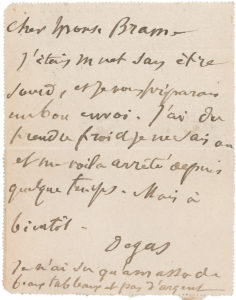 Cher Monsr Brame
J'étais muet sans être
sourd, et je vous préparais
un bon envoi. J'ai du
prendre froid je ne sais où
et me voila arrêté depuis
quelque temps. Mais à
bientôt.
Degas
Je n'ai su qu'amasser de
beaux tableaux et pas d'argent